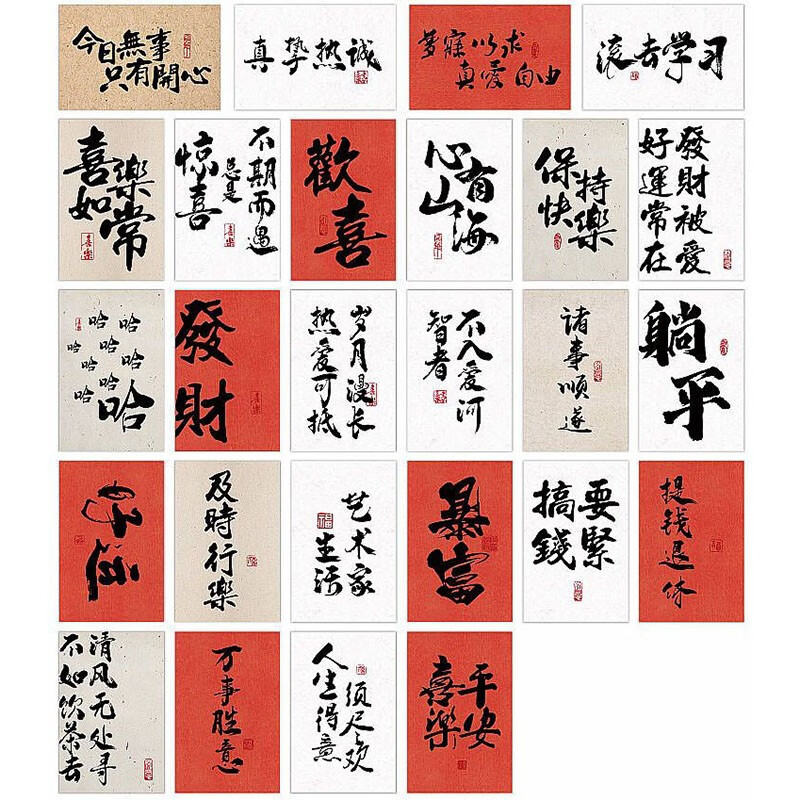 今日無事
只有開心
真挚热诚
梦寐以求
真愛自由
滚去学习
喜樂
如常
不期而遇
总是
惊喜
歡喜
心有
山海
保持
快樂
發財被愛
好運常在
哈哈
哈哈
哈哈
哈
哈哈
發財
岁月漫长
热爱可抵
智者
不入爱河
诸事順遂
躺平
及時行樂
艺术家
生活
暴富
搞錢
要緊
提钱退休
清风无处寻
不如饮茶去
万事胜意
人生得意
须尽欢
平安
喜樂